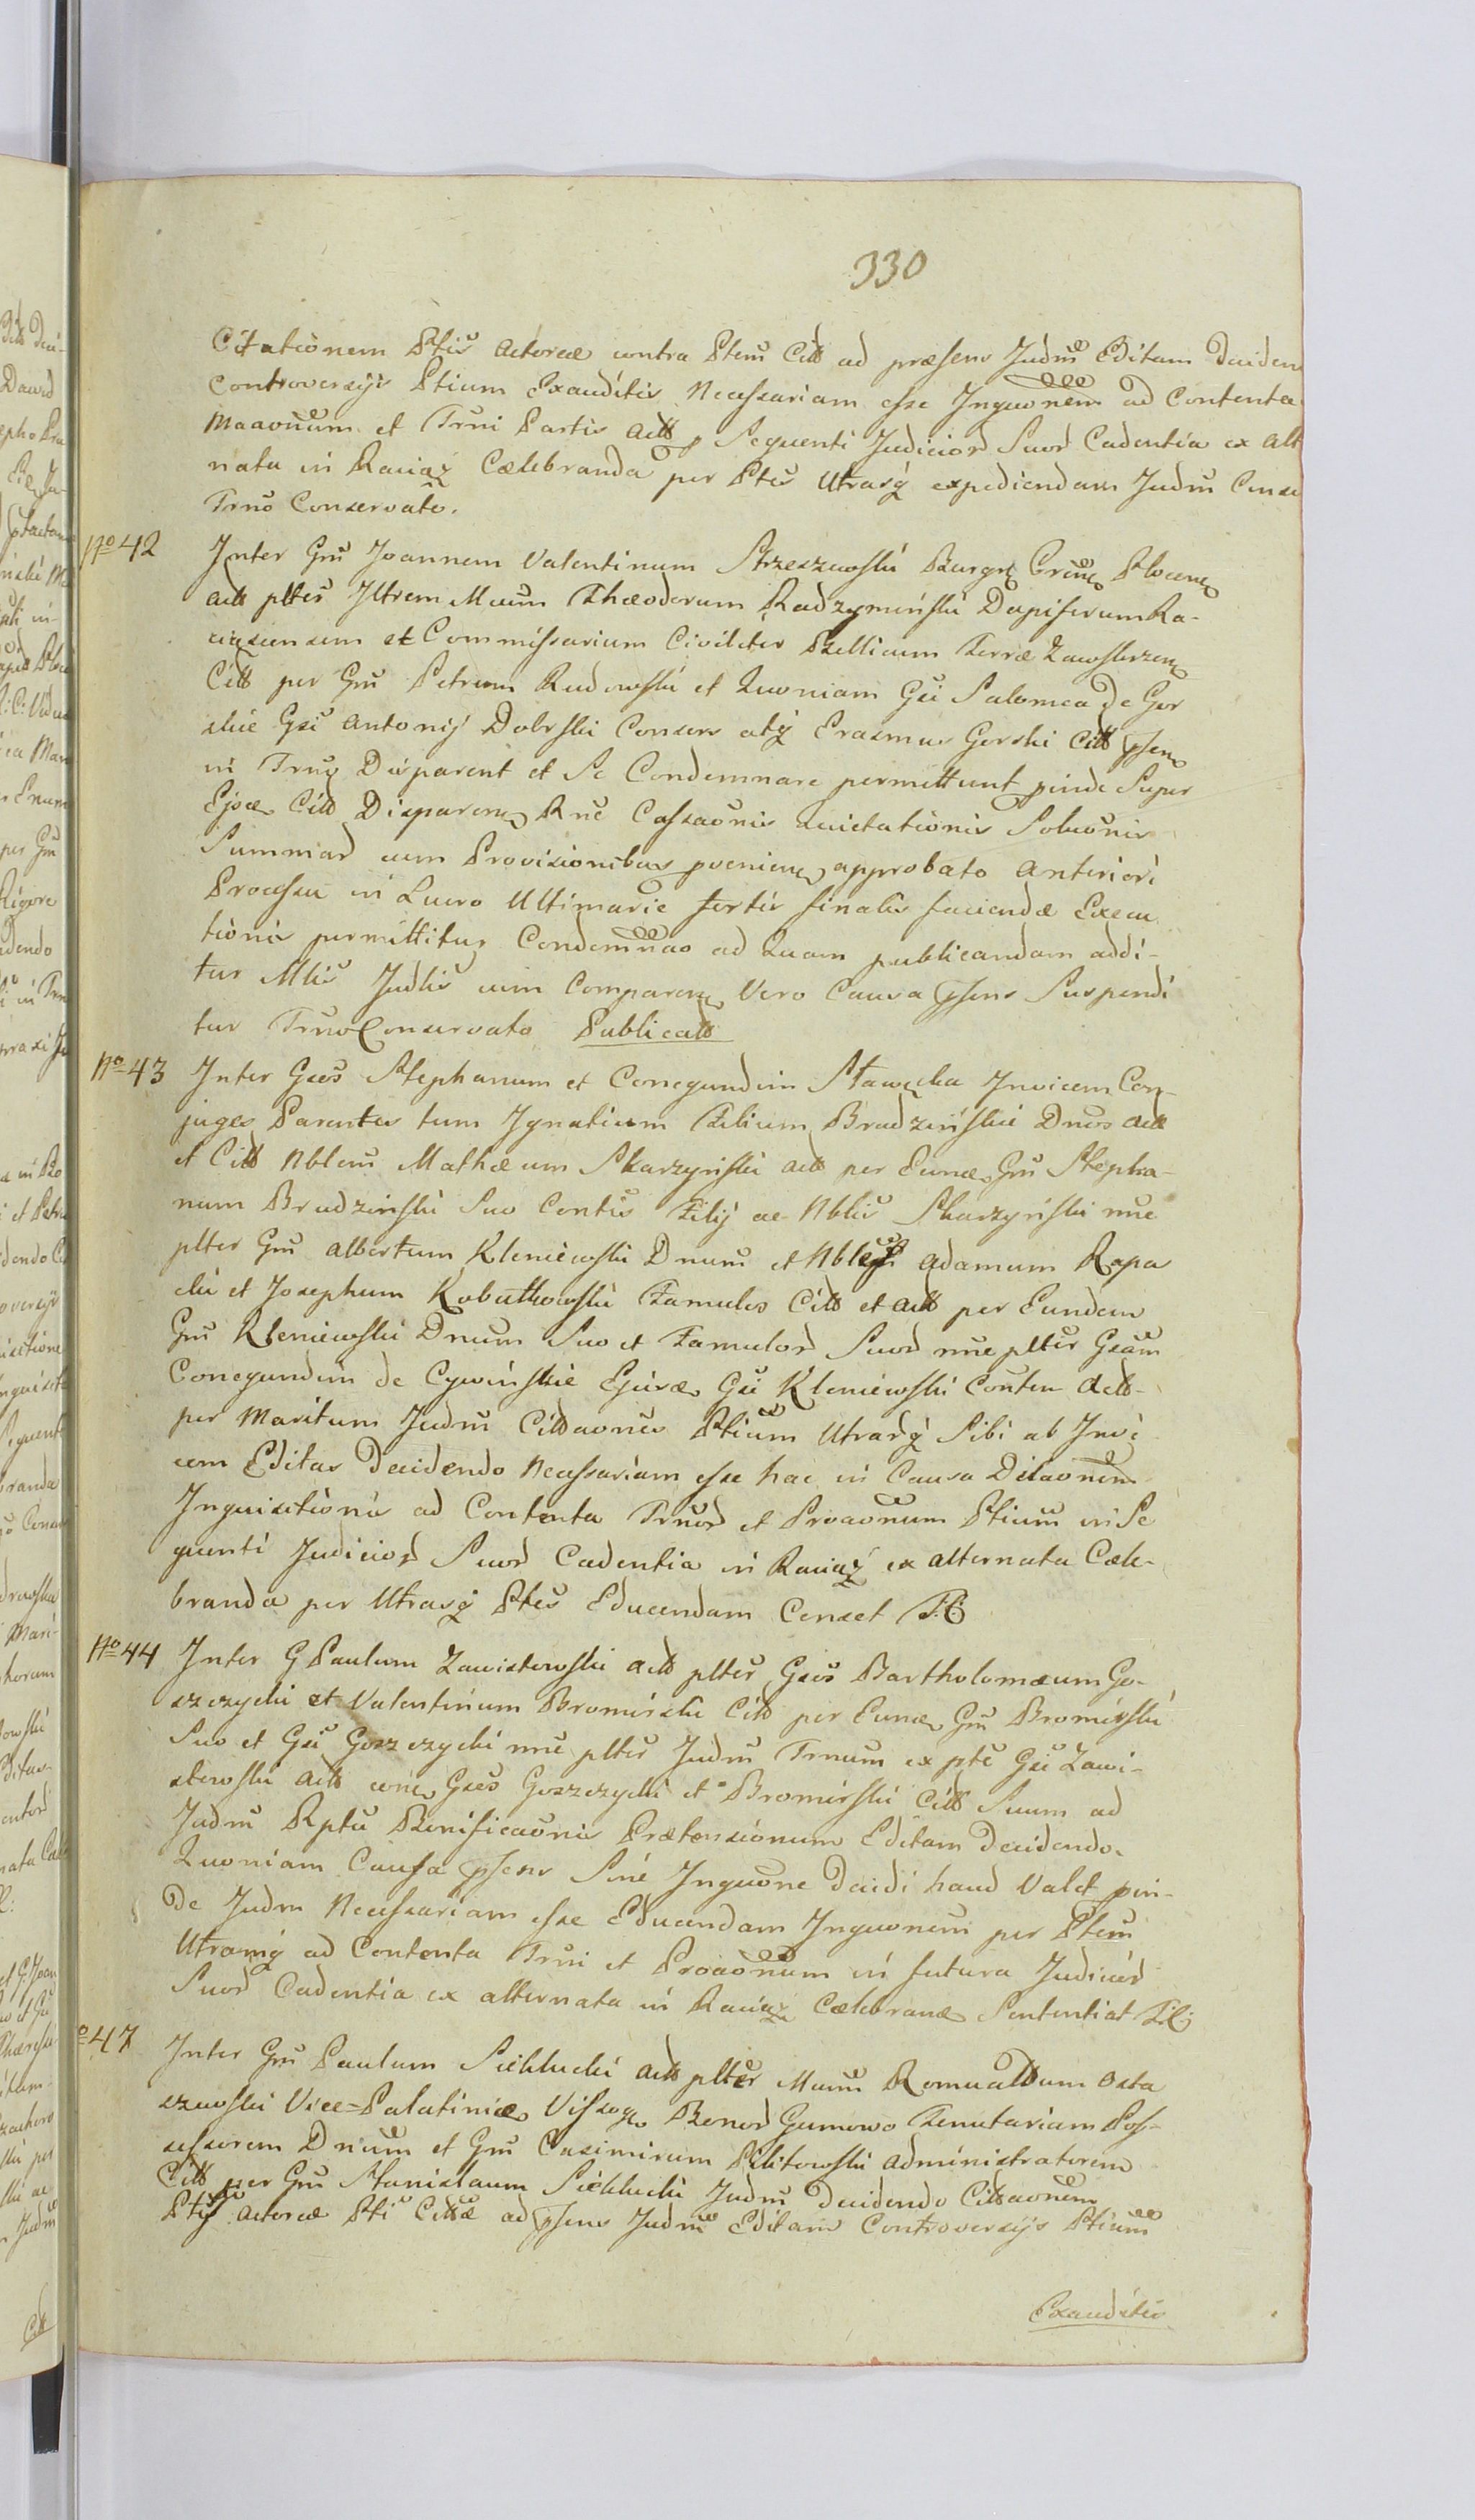 330
Citationem Ptis Actoreæ contra Ptem Citt ad præsens Judm Editam Deciden
Controversijs Ptium Exauditis Necessariam esse Inquonem ad Contenta
Maaonum et Trni Partis Actt Sequenti Judicior Suor Cadentia ex Alt
nata in Raciąż Cælebranda per Ptes Utrasq expediendam Judm Cense
Trno Conservato.
No 42 Inter Gm Joannem Valentinum Strzeszewski Burgr Crim Plocen
Actt pltes Illrem Mcum Theodorum Radzyminski Dapiferum Ra-
ciążensem et Commissarium Civiliter Bellicum Terræ Zawskrzen
Citt per Gm Petrum Rudowski et Quoniam Gsi Salomea de Gor
skie Gsi Antonij Dobrski Consors atq Erasmus Gorski Citt psen
in Trno Disparent et Se Condemnare permittunt pinde Super
Ejsce Citt Disparen Rne Cassaonis Quietationis Soluonis
Summar cum Provisionibus provenien approbato Anteriori
Processu in Lucro Ultimarie sortis finalis faciendæ Execu
tionis permittitur Condemnao ad Quam publicandam addi-
tur Mlis Judlis cum Comparen Vero Causa psens Suspendi
tur Trno Conservato Publicatt
No 43 Inter Gsos Stephanum et Conegundim Stawęcka Invicem Con-
juges Parentes tum Ignatium Filium Brudziński Dnos Actt
et Citt Nblem Mathæum Skarzyński Actt per Eund Gm Stepha-
num Brudzinski Suo Contis Filij ac Nblis Skarzyński nne
plter Gm Albertum Kleniewski Dnum et Nbles Adamum Rapa
cki et Josephum Kobutkowski Famulos Citt et Actt per Eundem
Gm Kleniewski Dnum Suo et Famulor Suor nne pltes Gsam
Conegundim de Cywińskie Ejusd Gsi Kleniewski Conten Actt
per Maritum Judm Cittaones Ptium Utrasq Sibi ab Invi
cem Editas Decidendo Necessariam esse hac in Causa Dilaonem
Inquisitionis ad Contenta Trnor et Proaonum Ptium in Se
quenti Judicior Suor Cadentia in Raciąż ex alternata Cæle-
branda per Utrasq Ptes Educendam Censet T.C
No 44 Inter G Paulum Zawistowski Actt pltes Gsos Bartholomæum Go-
szczycki et Valentinum Bromirski Citt per Eund Gm Bromirski
Suo et Gsi Goszczycki nne pltes Judm Trnum ex pte Gsi Zawi-
stowski Actt con Gsos Goszczycki et Bromirski Citt Suum ad
Judm Rptu Bonificaonis Prætensionum Editam Decidendo.
Quoniam Causa psens Sine Inquone Decidi haud Valet pin-
de Judm Necessariam esse Educendam Inquonem per Ptem
Utramq ad Contenta Trni et Proaonum in futura Judicior
Suor Cadentia ex alternata in Raciąż Cælebrand Sententiat T.C
o 47 Inter Gm Paulum Sieklucki Actt plter Mcum Romualdum Osta
szewski Vice=Palatinid Vissog Bonor Gumowo Tenutarium Pos-
sessorem Dnum et Gm Casimirum Pilitowski Administratorem
Citt per Gm Stanislaum Sieklucki Judm Decidendo Cittaonem
Ptis Actoreæ Pti Cittæ ad psens Judm Editam Controversijs Ptium
Exauditis